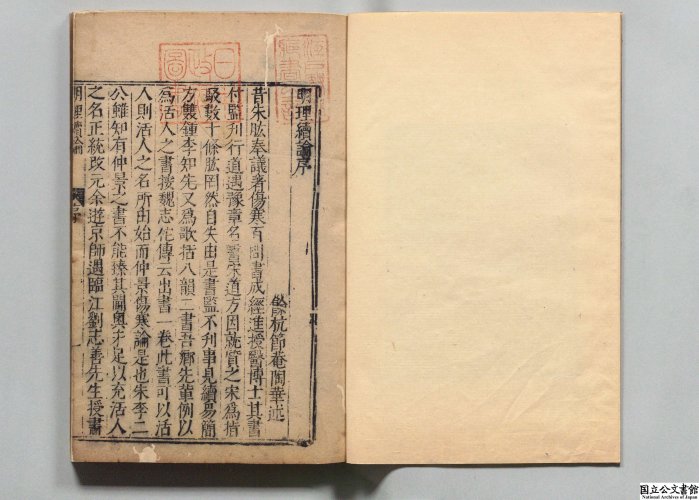 明理續論序
餘杭節菴陶華述
昔朱肱奉議著傷寒百問書成經進授醫博士其書
付監刋行道遇豫章名醫宋道方因就質之宋爲指
駁數十條肱罔然自失由是書監不刋事見續易簡
方雙鍾李知先又爲歌括八韻二書吾鄉先軰例以
爲活人之書按魏志佗傳云出書一卷此書可以活
人則活人之名所由始而仲景傷寒論是也朱李二
公雖知有仲景之書不能臻其閫奥才足以充活人
之名正統改元余遊京師遇臨江劉志善先生授書
明理續論 序
日本政府圖書
国立公文書館
National Archives of Japan